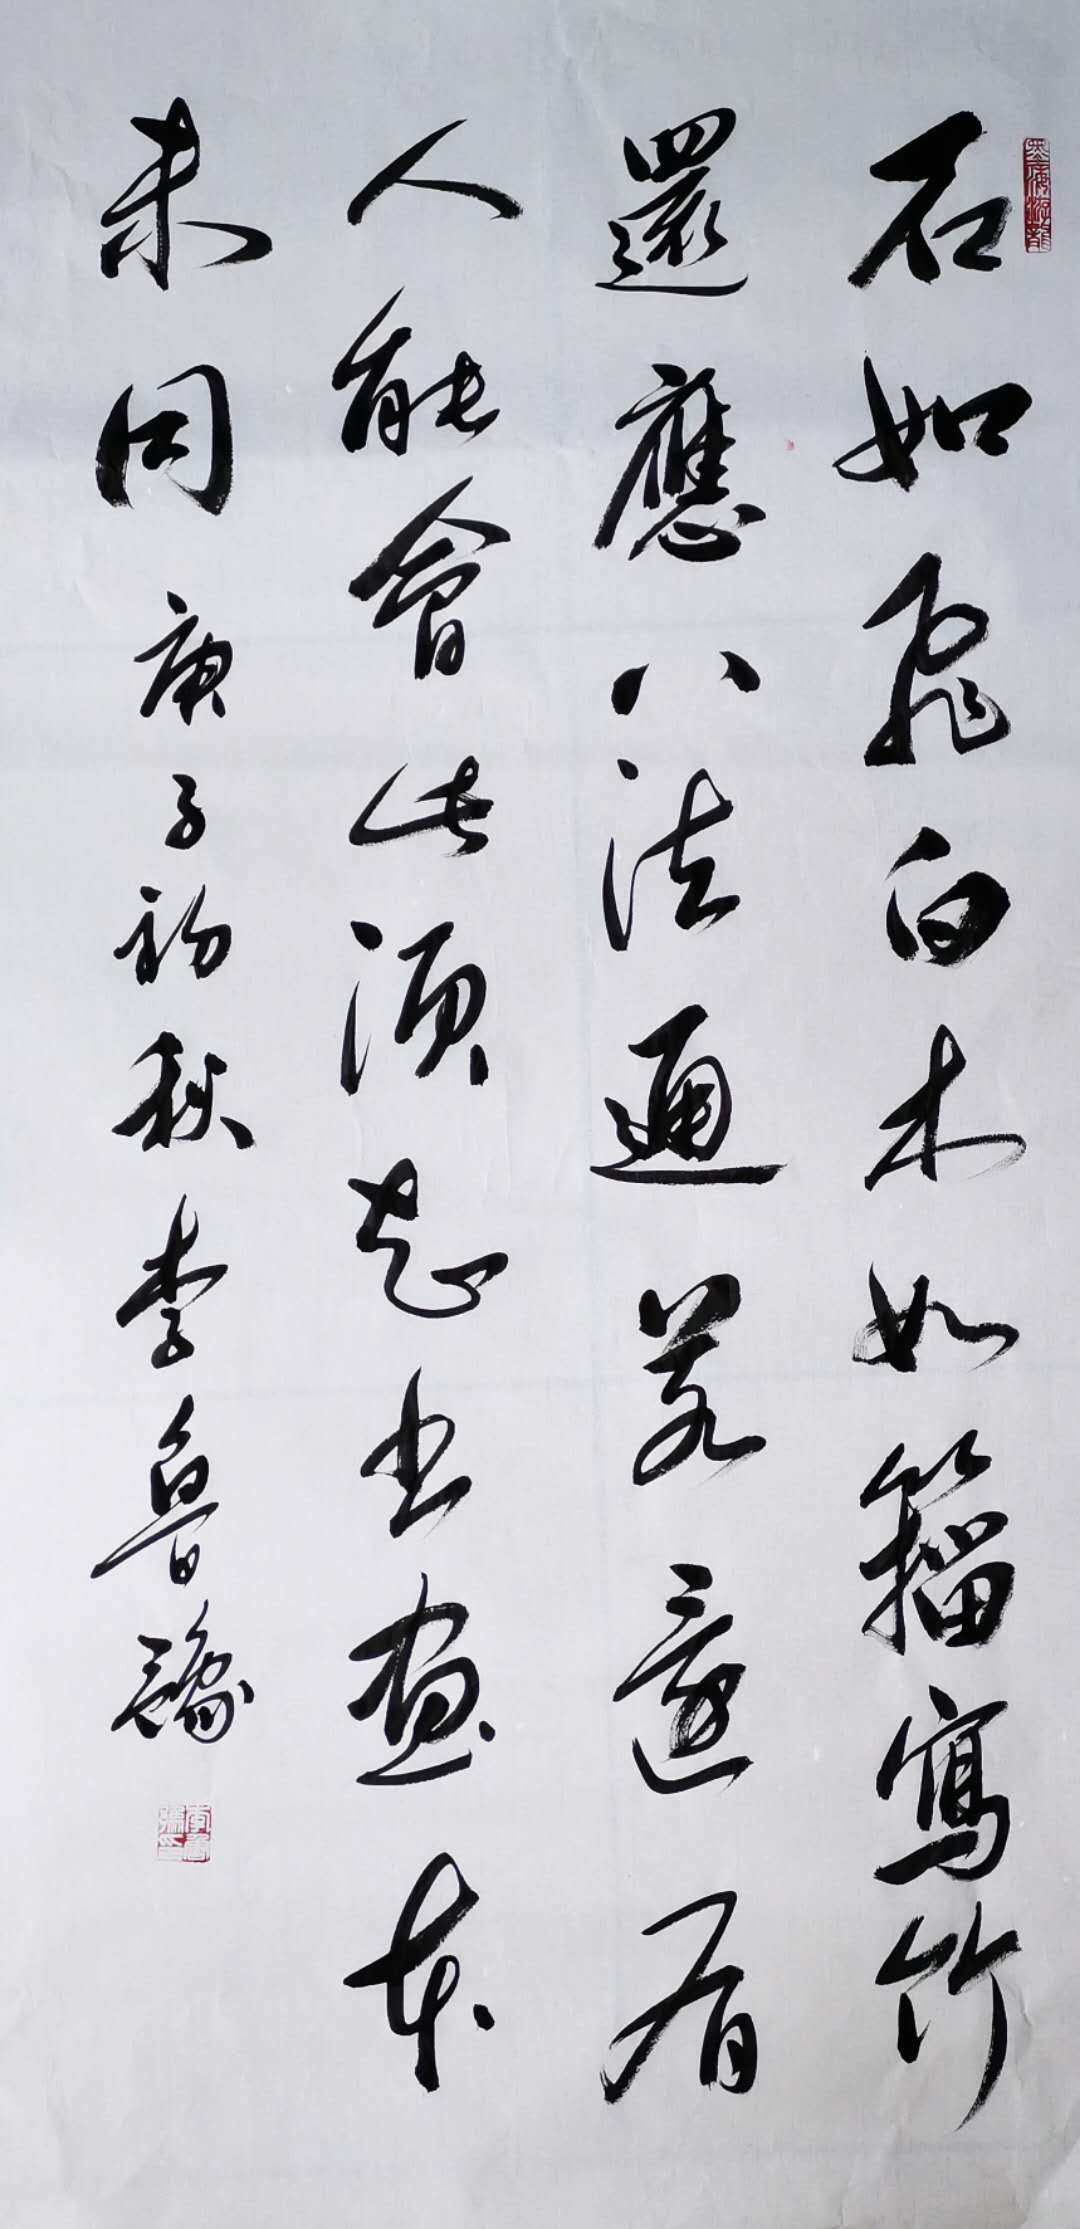 石如飛白木如籀寫竹
還應八法通若還有
人能會此須知書画本
来同庚子初秋李魯豫